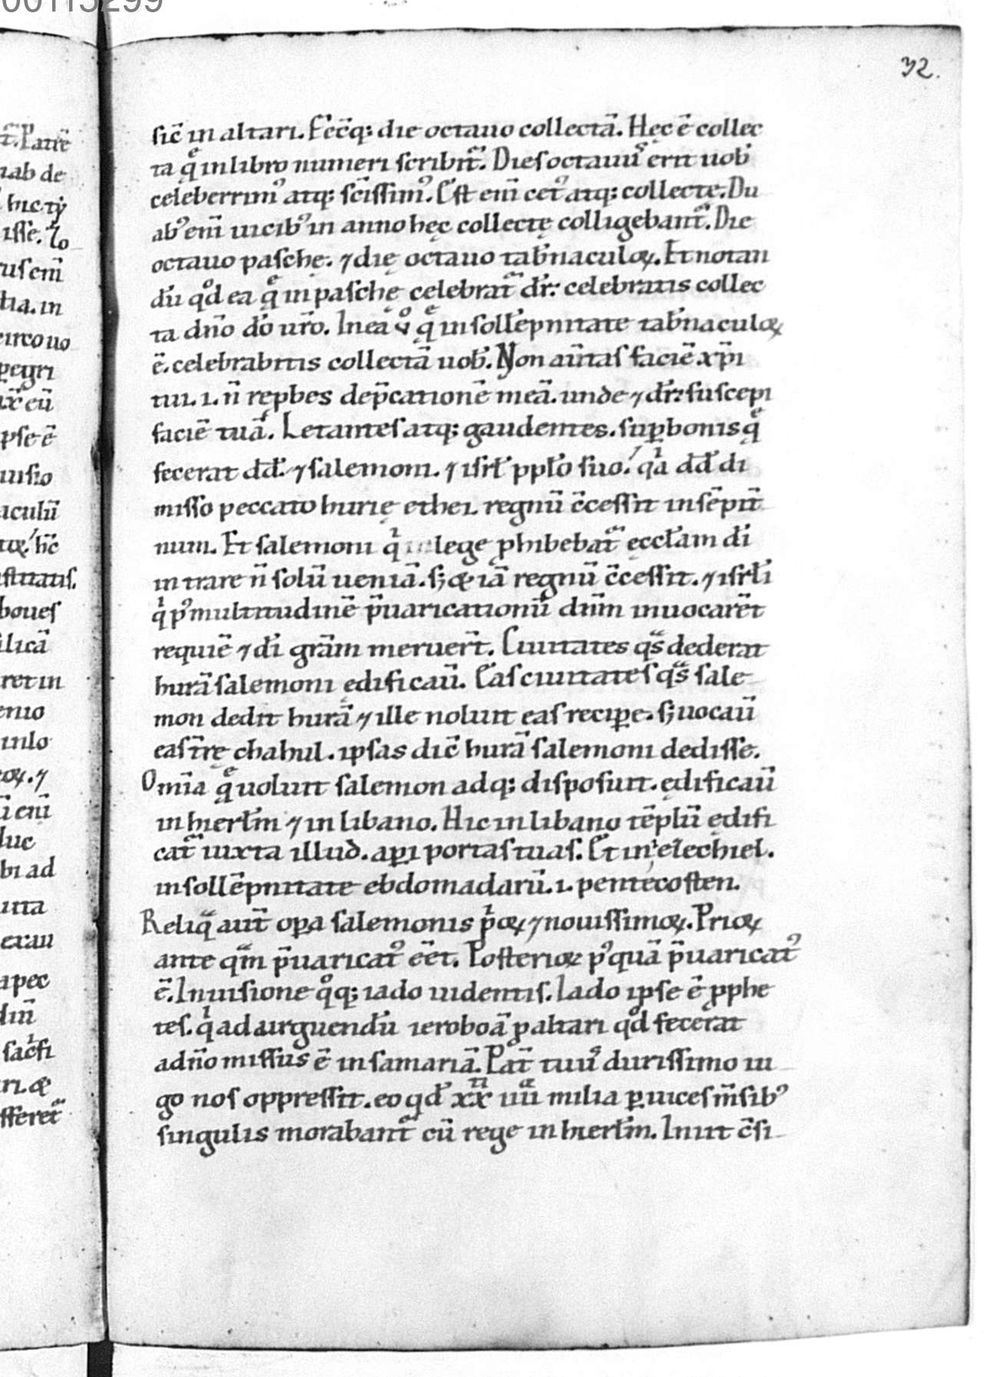 00115299
32.
sic̄ in altari. Fec̄q; die octauo collectā. Hęc ē collec
ta q̄ in libro numeri scribit̄. Dies octauuˀ erit uob̄
celeberrimˀ atq; sc̄issimˀ. Est eni̅ cetˀ atq; collectę. Du
abˀ eni̅ uicibˀ in anno hęc collectę colligebant̄. Die
octauo paschę. ⁊ die octauo tab̄naculoꝝ. Et notan
du̅ qd̄ ea q̄ in paschę celebrat̄ dr̄: celebratis collec
ta dn̄o dō ur̄o. In ea v̊ q̄ in sollēpnitate tab̄naculoꝝ
ē. celebrabitis collectā uob̄. Non aūtas faciē xp̄i
tui. i. n̄ repbes dep̄cationē meā. unde ⁊ dr̄: suscepi
faciē tuā. Letantes atq; gaudentes. suꝑ bonis q̄
fecerat dd̄. ⁊ salemoni. ⁊ isrł ppło suo. qa dd̄ di
misso peccato hurię ethei. regnū c̄cessit in sēpit̄
num. Et salemoni qi lege phibebat̄ eccłam dī
intrare n̄ solū ueniā. sꝫ & iā regnū c̄cessit. ⁊ isrłi
qi pˀ multitudinē p̄uaricationū dn̄m inuocarēt
requiē ⁊ dī grām meruer̄t. Ciuitates qs̄ dederat
hurā salemoni ędificaū. Eas ciuitates qs̄ sale
mon dedit hurā ⁊ ille noluit eas reciꝑe. sꝫ uocaū
eas tr̄ę chabul. ipsas dic̄ hurā salemoni dedisse.
Omīa q̄ uoluit salemon adq; disposuit. ędificaū
in hierłm ⁊ in libano. Hic in libano tēplū ędifi
cat̄ iuxta illud. aperi portas tuas. Et in ezechiel.
in sollēpnitate ebdomadarū. i. pentecosten.
Reliq̄ aut̄ oꝑa salemonis prioꝝ ⁊ nouissimoꝝ. Prioꝝ
ante qm̄ p̄uaricatˀ eēt. Posterioꝝ pˀquā p̄uaricatˀ
ē. In uisione qoq; iado uidentis. Iado ipse ē pphe
tes. qi ad arguendū ieroboā ꝑ altari qd̄ fecerat
a dn̄o missus ē in samariā. Pat̄ tuuˀ durissimo iu
go nos oppressit. eo qd̄ xx̄ uii milia ꝑ uices m̄sibˀ
singulis morabant̄ cū rege in hierłm. Iniit c̄si